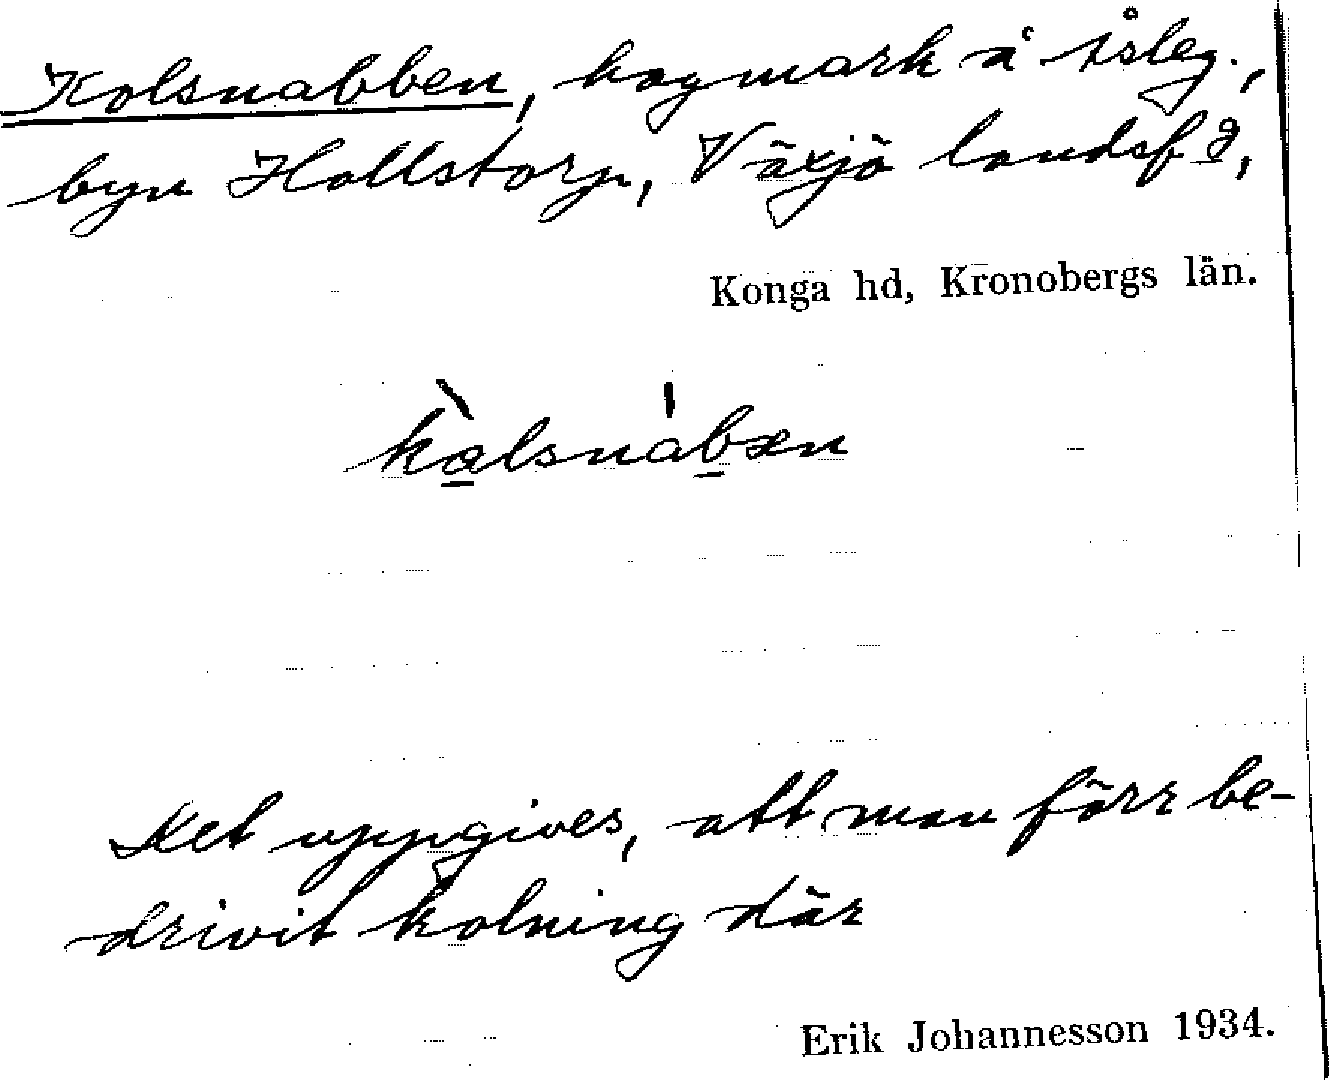 Kolsnabben, hagmark å isleg.,
byn Hollstorp, Växjö landsf d,
Konga hd, Kronobergs län.
kàlsnábæn
Det uppgives, att man förr be-
drivit kolning där
Erik Johannesson 1934.